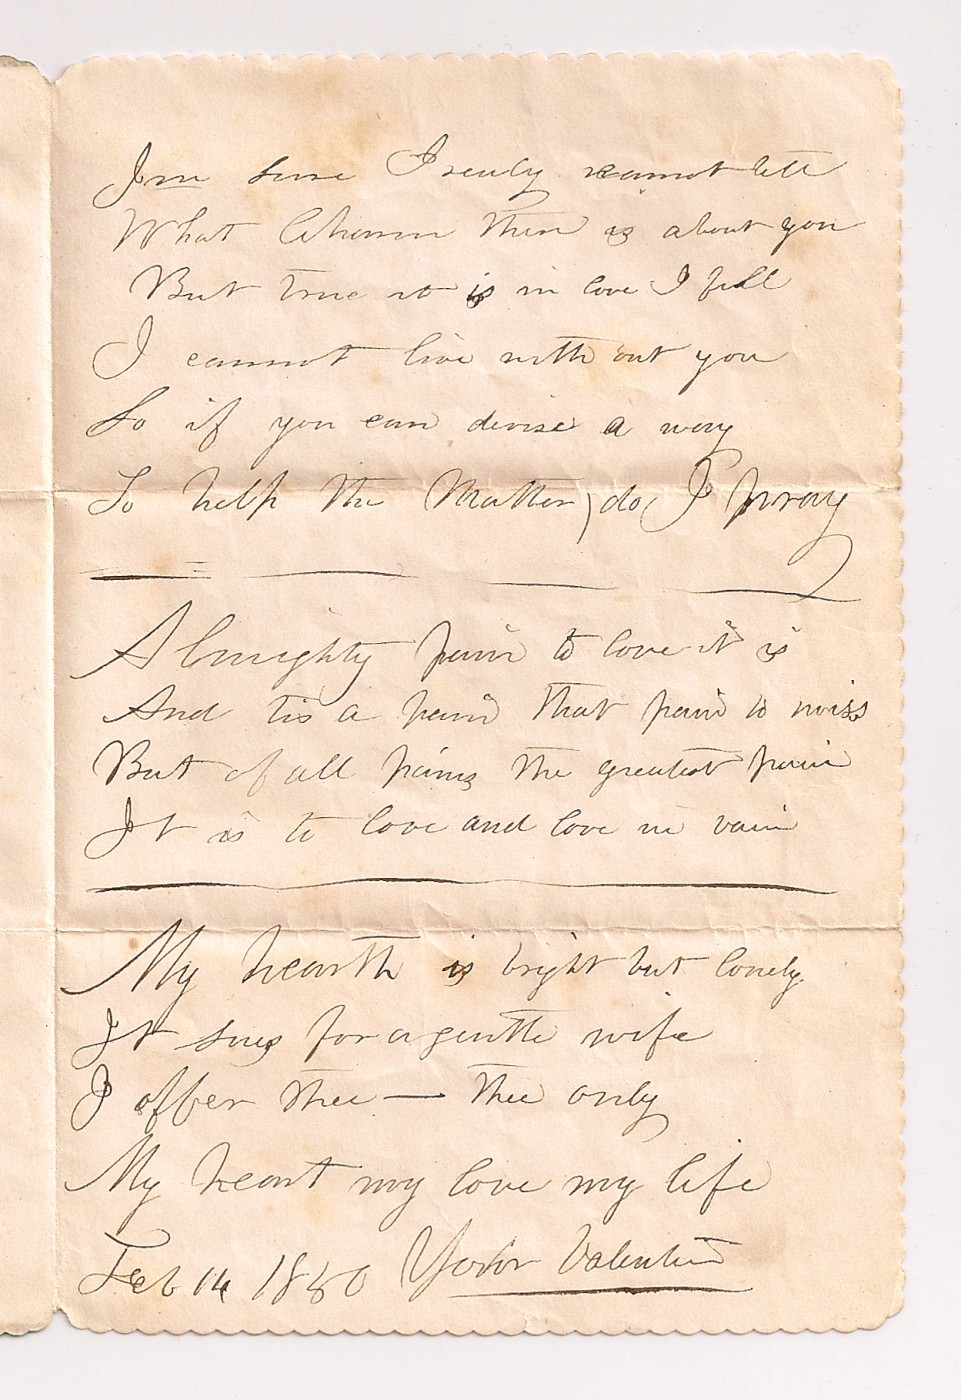 I'm sure I realy cannot tell
What Charm there is about you
But true it is in love I fell
I cannot live with out you
So if you can devise a way
To help the Matter, do, I pray
Almighty pain to love it is
And tis a pain that pain to miss
But of all pains the greatest pain
It is to love and love in vain
My hearth is bright but lonely
It sues for a gentle wife
I offer thee — thee only
My heart my love my life
Feb 14 Your Valentine